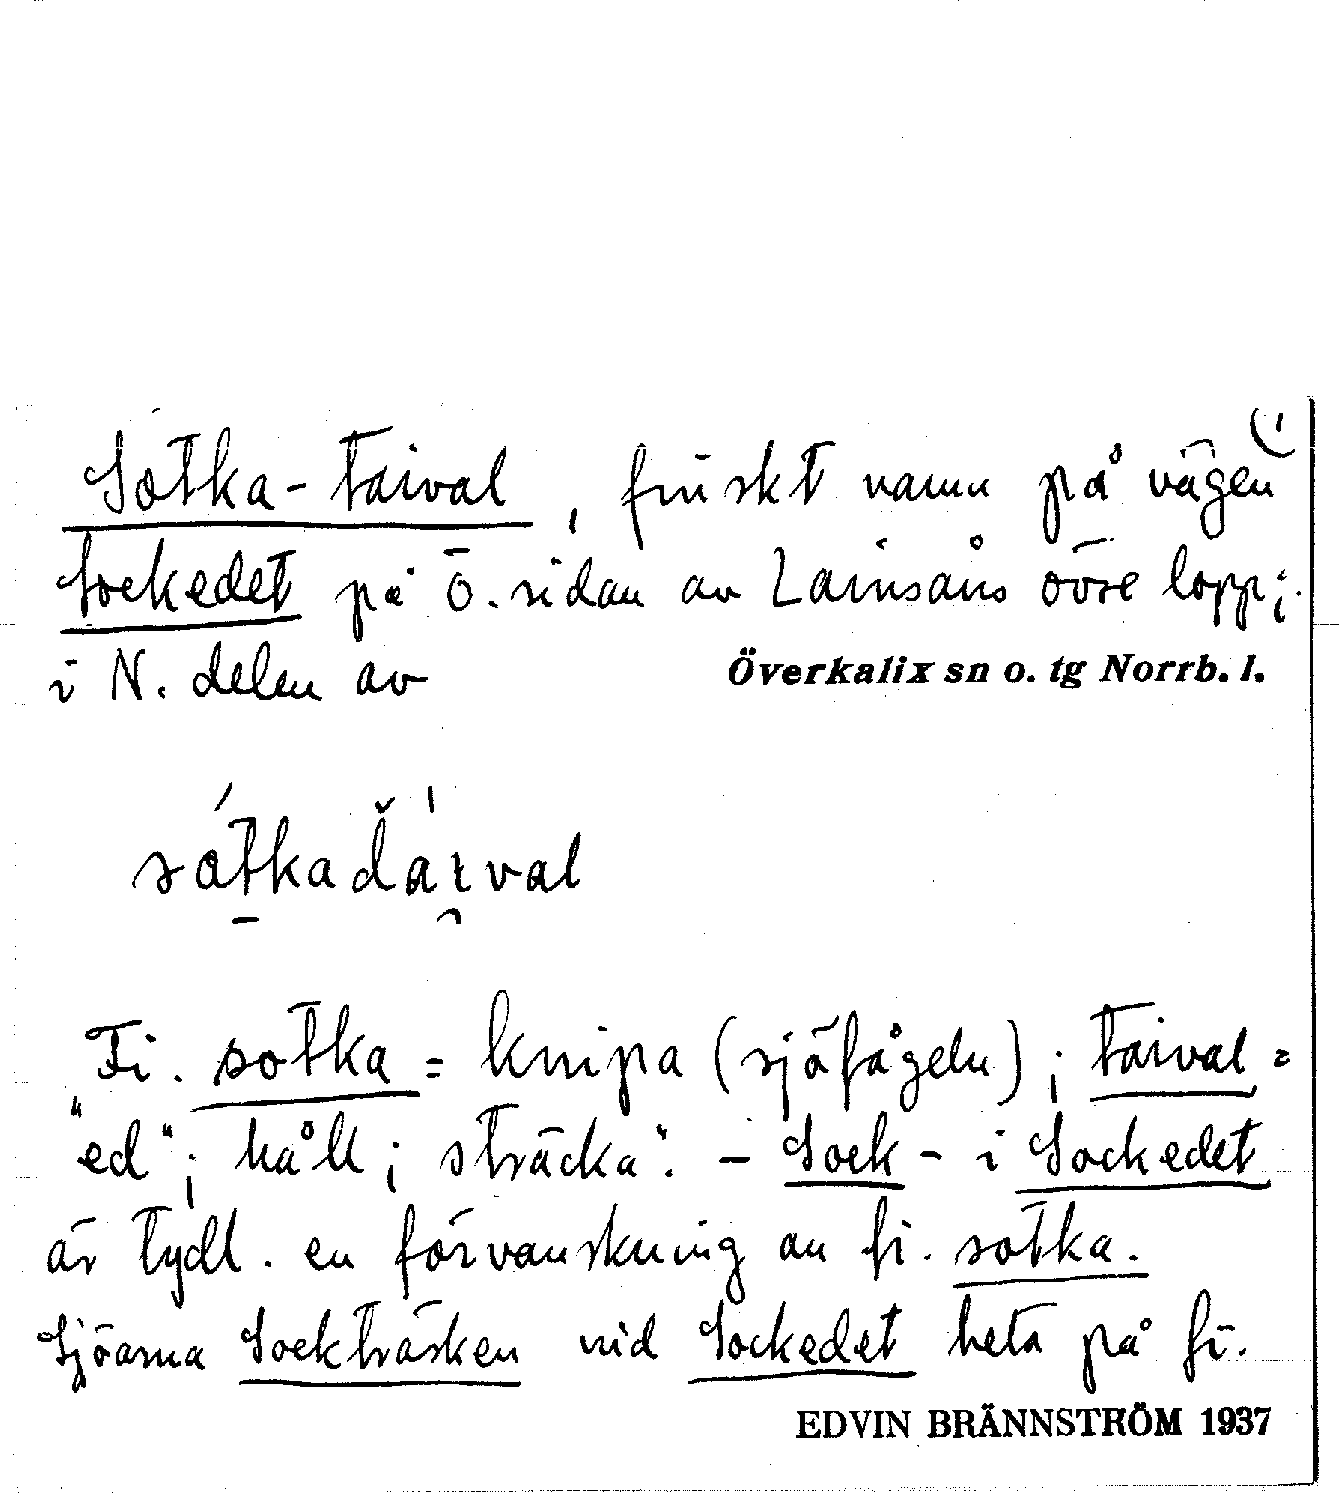 (1
Sotka-taival, finskt namn på vägen
Sockedet på ö. sidan av Lainsåns övre lopp;
i N. delen av Överkalix sn o. tg Norrb. l.
sotkadaival
Fi. sotka = knipa (sjöfågeln); taival =
"ed"; håll; sträcka". - Sock- i Sockedet
är tydl. en förvanskning av fi. sotka.
Sjöarna Sockträsken vid Sockedet heta på fi.
EDVIN BRÄNNSTRÖM 1937